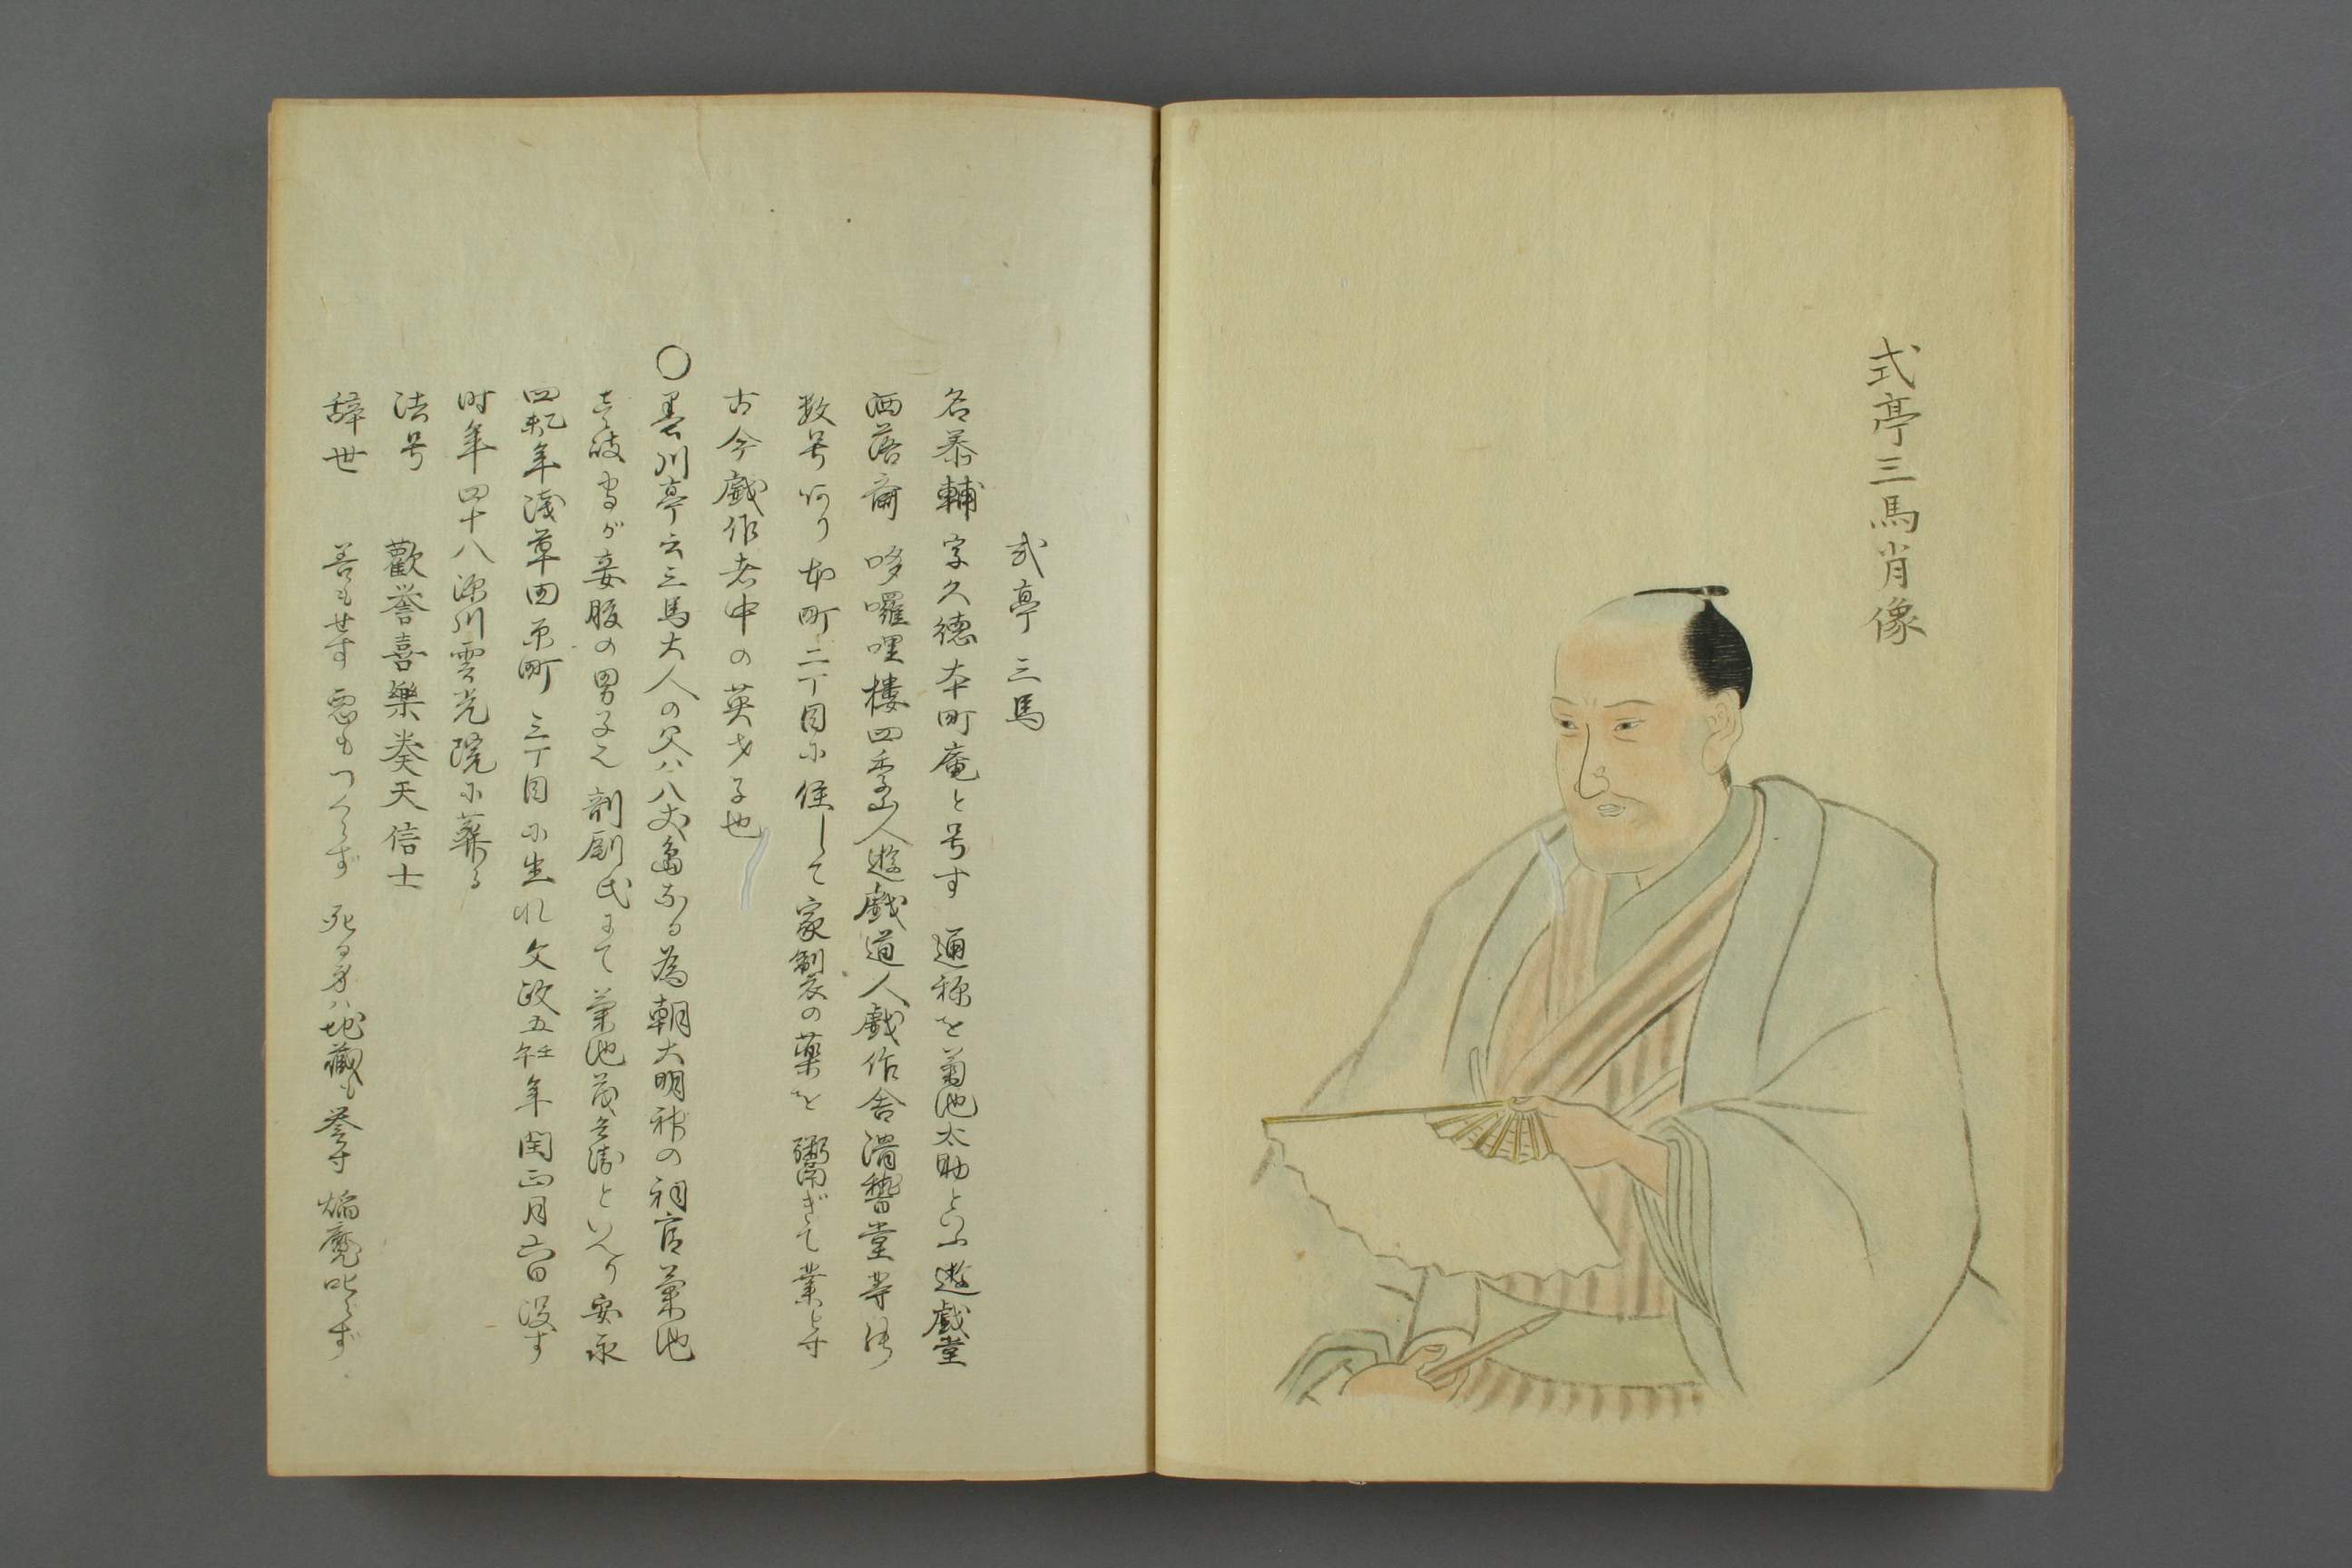 式亭三馬肖像
式亭三馬
名泰輔字久徳本町庵と号す通称を菊池太助といふ遊戯堂
洒落斎哆囉哩楼四季山人遊戯道人戯作舎滑稽堂等の
数号あり本町二丁目に住して家製の薬を鬻ぎて業とす
古今戯作者中の英才子也
○墨川亭云三馬大人の父ハ八丈島なる為朝大明神の祠官菊池
壱岐守が妾腹の男子之剞劂氏にて菊池茂兵衛といへり安永
四乙未年浅草田原町三丁目に生れ文政五壬午年閏正月六日没す
时年四十八深川雲光院に葬る
法号 歡誉喜樂奏天信士
辞世 善もせす悪もつくらず死る身ハ地蔵も誉す焔魔叱らず